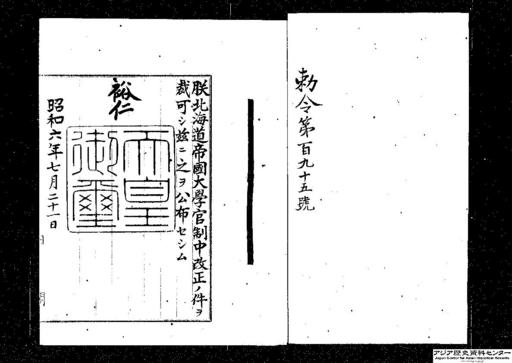 勅令第百九十五號
朕北海道帝國大學官制中改正ノ件ヲ
裁可シ茲ニ之ヲ公布セシム
裕仁
天皇
御璽
昭和六年七月二十一日
アジア歴史資料センター
Japan Center for Asian Historical Records